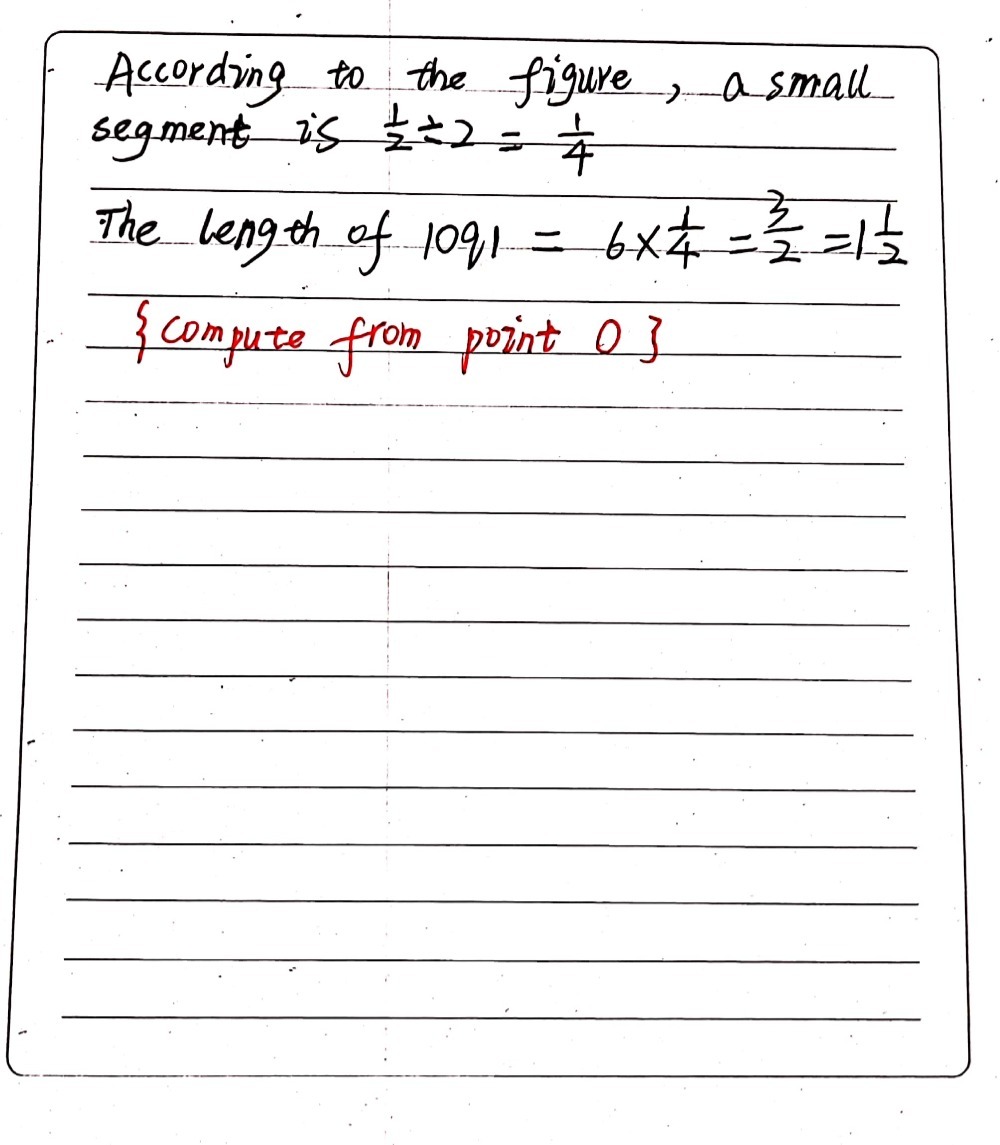 According to the figure, a small
segment is 1/2 ÷ 2 = 1/4
The length of |oq| = 6 × 1/4 = 3/2 = 1 1/2
{compute from point 0}